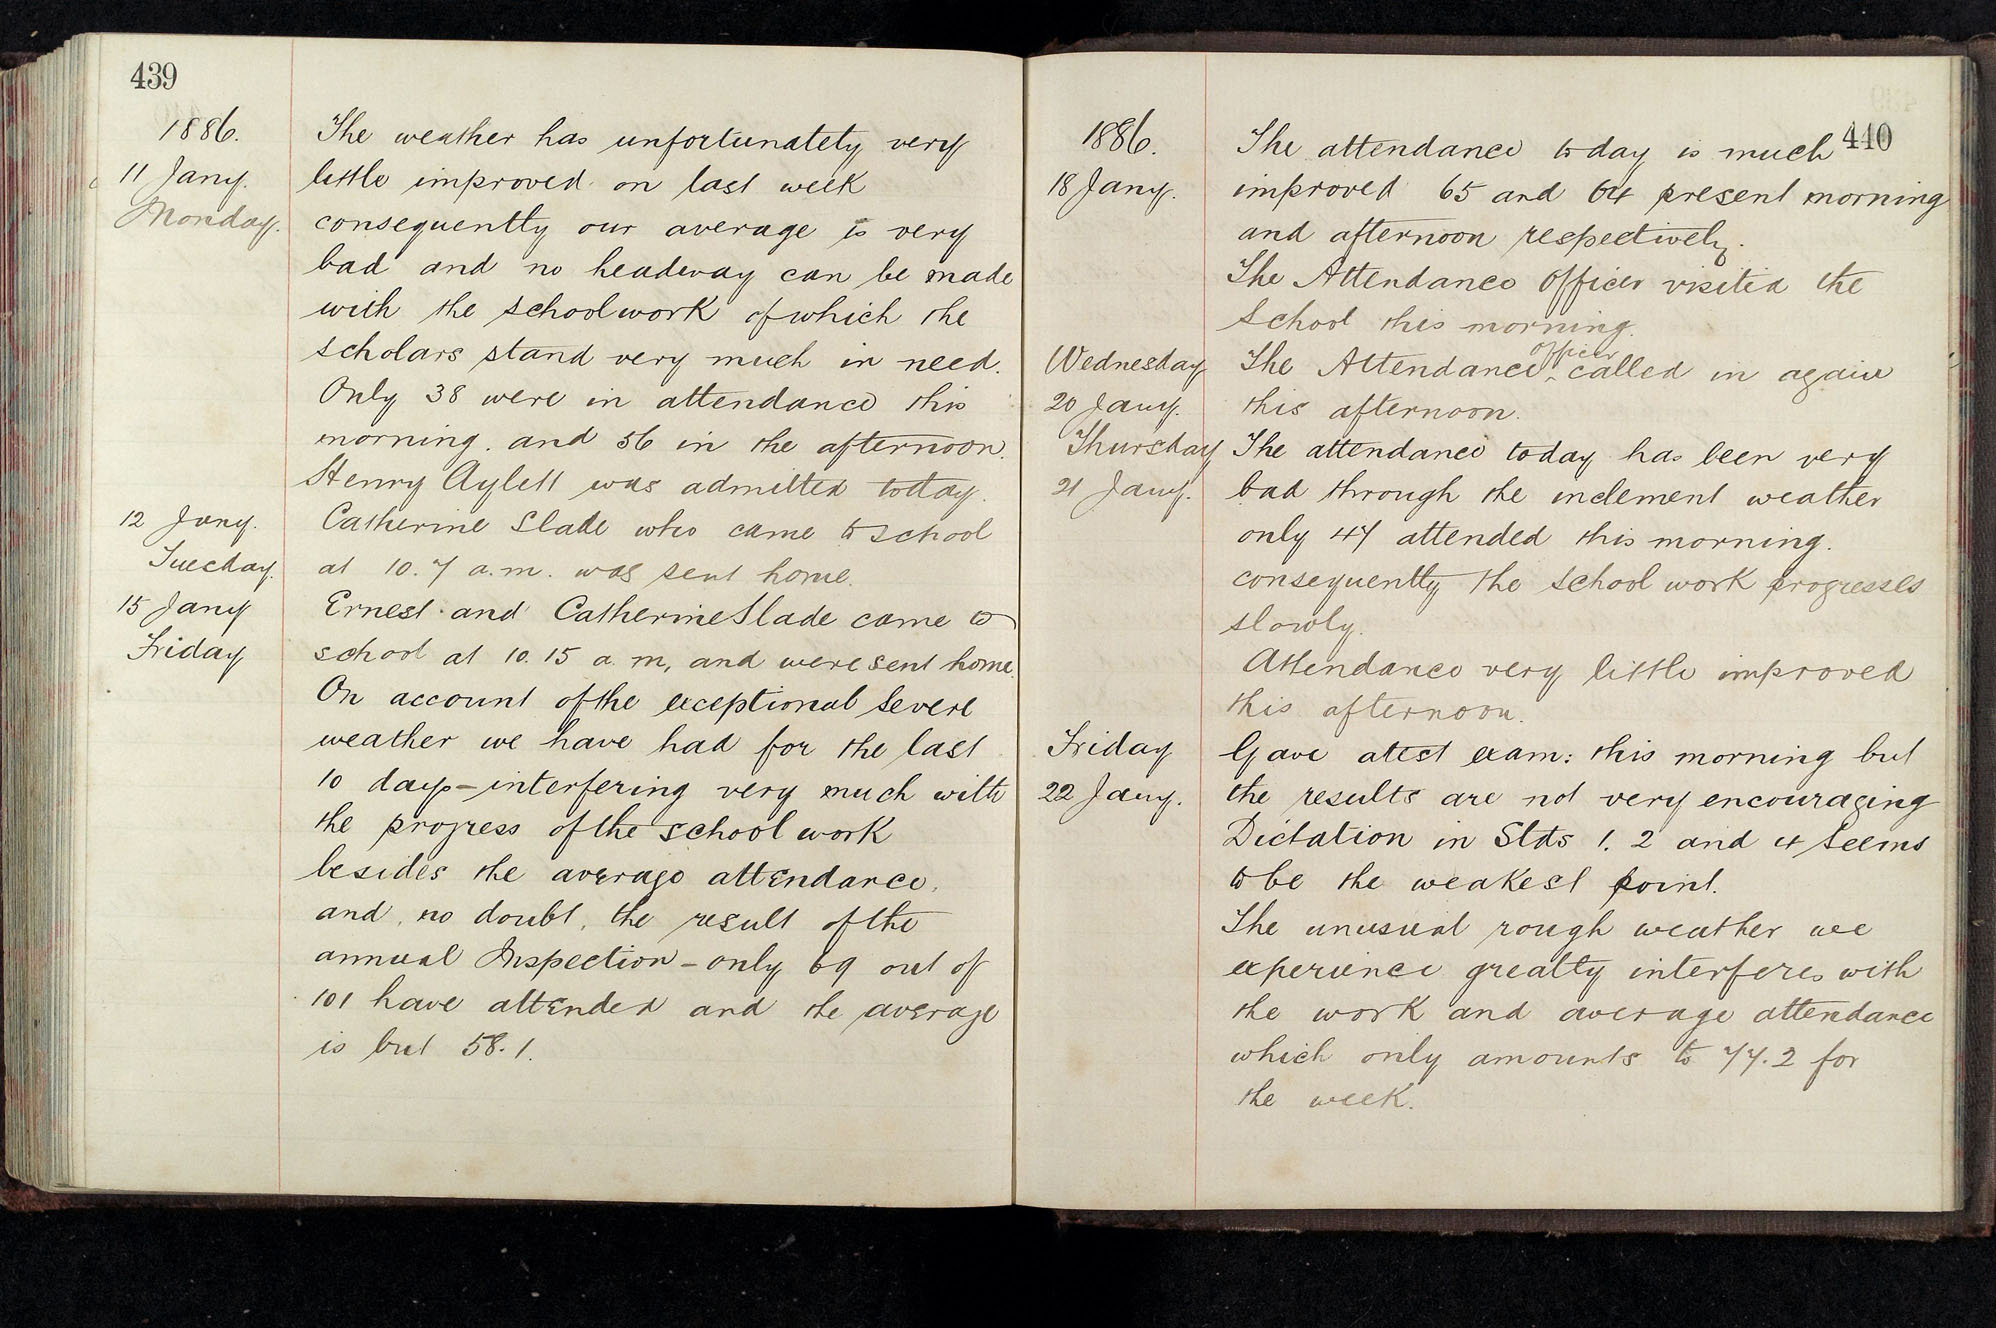 439
1886.
11 Jany.
Monday.
The weather has unfortunately very
little improved on last week
consequently our average is very
bad and no headway can be made
with the schoolwork of which the
scholars stand very much in need.
Only 38 were in attendance this
morning. and 56 in the afternoon.
Henry Aylett was admitted today.
12 Jany.
Tuesday.
Catherine Slade who came to school
at 10.7 a.m. was sent home.
15 Jany
Friday
Ernest and Catherine Slade came to
school at 10.15 a.m, and were sent home.
On account of the exceptional severe
weather we have had for the last
10 days - interfering very much with
the progress of the school work
besides the average attendance,
and, no doubt, the result of the
annual Inspection - only 69 out of
101 have attended and the average
is but 58.1.
440
1886.
18 Jany.
The attendance today is much
improved 65 and 64 present morning
and afternoon respectively.
The Attendance Officer visited the
School this morning.
Wednesday
20 Jany.
The Attendance officer called in again
this afternoon.
Thursday
21 Jany.
The attendance today has been very
bad through the inclement weather
only 47 attended this morning.
consequently the school work progresses
slowly.
Attendance very little improved
this afternoon.
Friday
22 Jany.
Gave a test exam: this morning but
the results are not very encouraging
Dictation in Stds 1. 2 and 4 seems
to be the weakest point.
The unusual rough weather we
experience greatly interferes with
the work and average attendance
which only amounts to 77.2 for
the week.